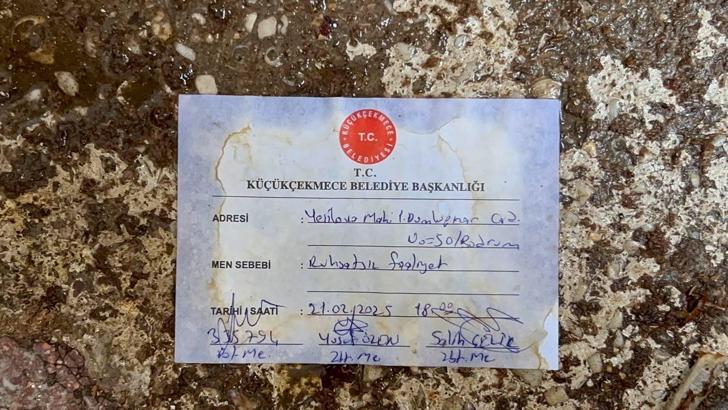 KÜÇÜKÇEKMECE
T.C.
BELEDİYESİ
T.C.
KÜÇÜKÇEKMECE BELEDİYE BAŞKANLIĞI
ADRESİ : Yeşilova Mah. 1. Dumlupınar Cad.
No=50/Bodrum
MEN SEBEBİ : Ruhsatsız faaliyet
TARİHİ / SAATİ : 21.02.2025 18:00
Yusuf Salih ÇELİK
Zbt. Me. Zbt. Me Zbt. Me